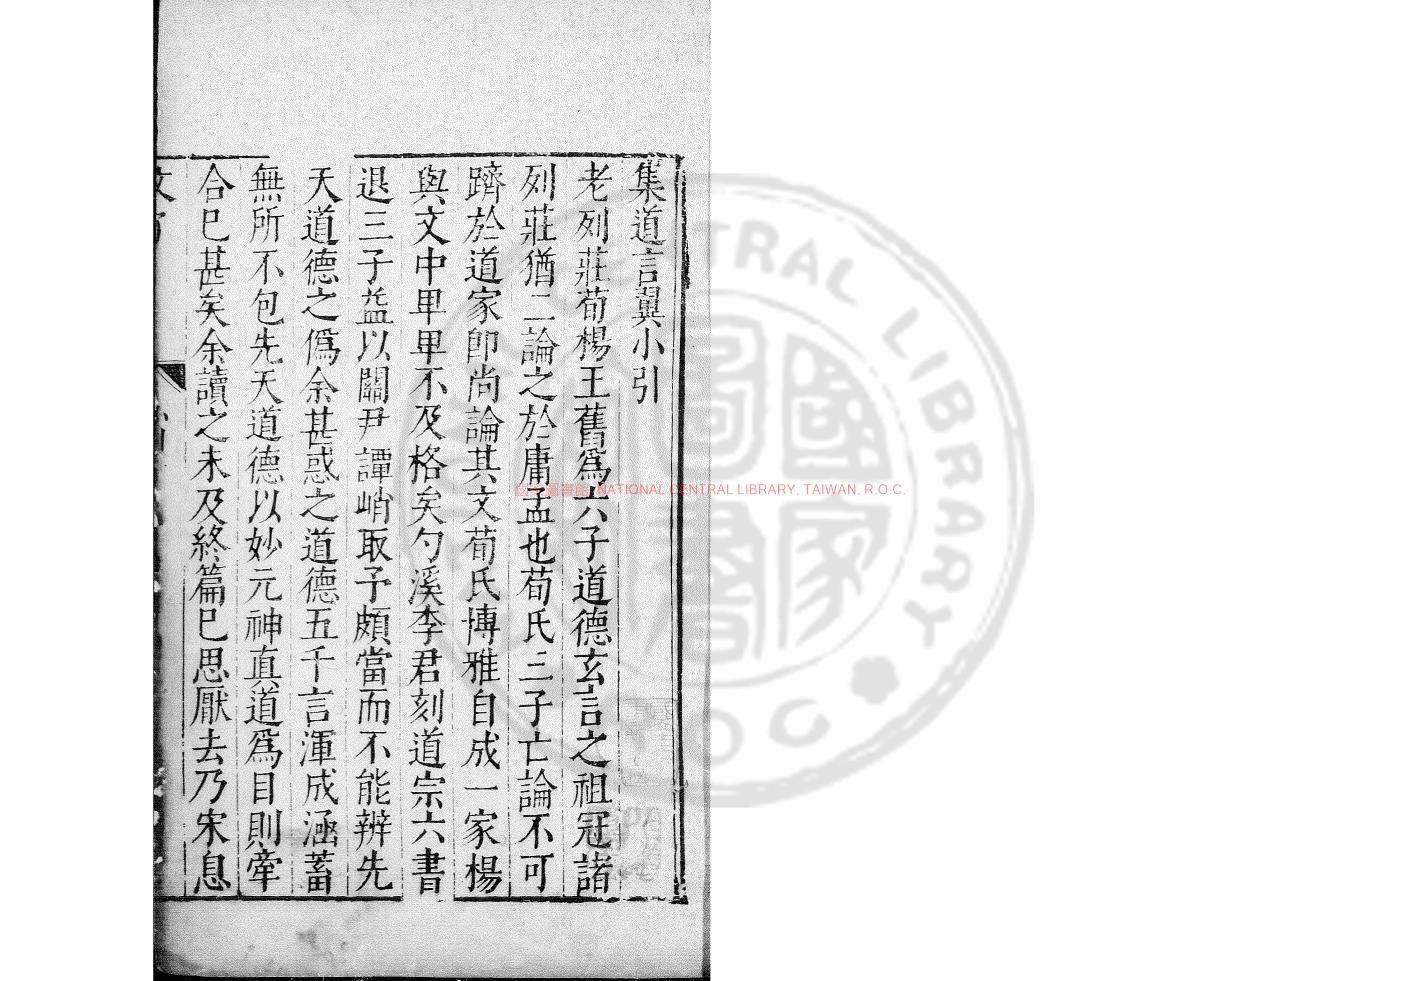 集道言翼小引
老列莊荀楊王舊爲六子道德玄言之祖冠諸
列莊猶二論之於庸孟也荀氏三子亡論不可
躋於道家卽尚論其文荀氏博雅自成一家楊
與文中卑卑不及格矣勺溪李君刻道宗六書
退三子益以關尹譚峭取予頗當而不能辨先
天道德之僞余甚惑之道德五千言渾成涵蓄
無所不包先天道德以妙元神真道爲目則牽
合已甚矣余讀之未及終篇已思厭去乃宋息
國家圖書館 NATIONAL CENTRAL LIBRARY, TAIWAN, R.O.C.
CENTRAL LIBRARY
R.O.C